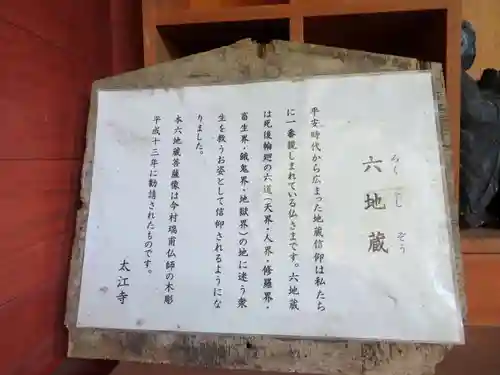 六地蔵
ろく じ ぞう
平安時代から広まった地蔵信仰は私たち
に一番親しまれている仏さまです。六地蔵
は死後輪廻の六道(天界・人界・修羅界・
畜生界・餓鬼界・地獄界)の地に迷う衆
生を救うお姿として信仰されるようにな
りました。
本六地蔵菩薩像は今村瑞甫仏師の木彫
平成十三年に勧請されたものです。
太江寺